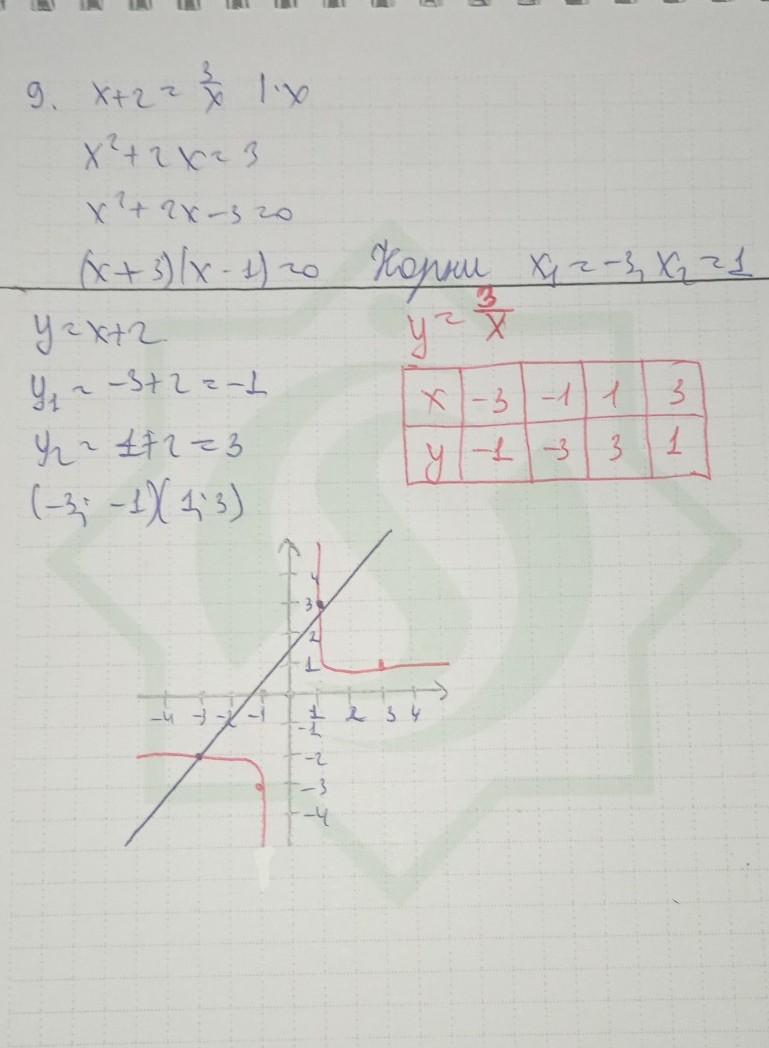 9. x+2 = 3/x |·x
x²+2x=3
x²+2x-3=0
(x+3)(x-1)=0 Корни x₁=-3, x₂=1
y=x+2
y₁=-3+2=-1
y₂=1+2=3
(-3; -1)(1; 3)
y=3/x
x -3 -1 1 3
y -1 -3 3 1
4
3
2
1
-4 -3 -2 -1 1 2 3 4
-1
-2
-3
-4